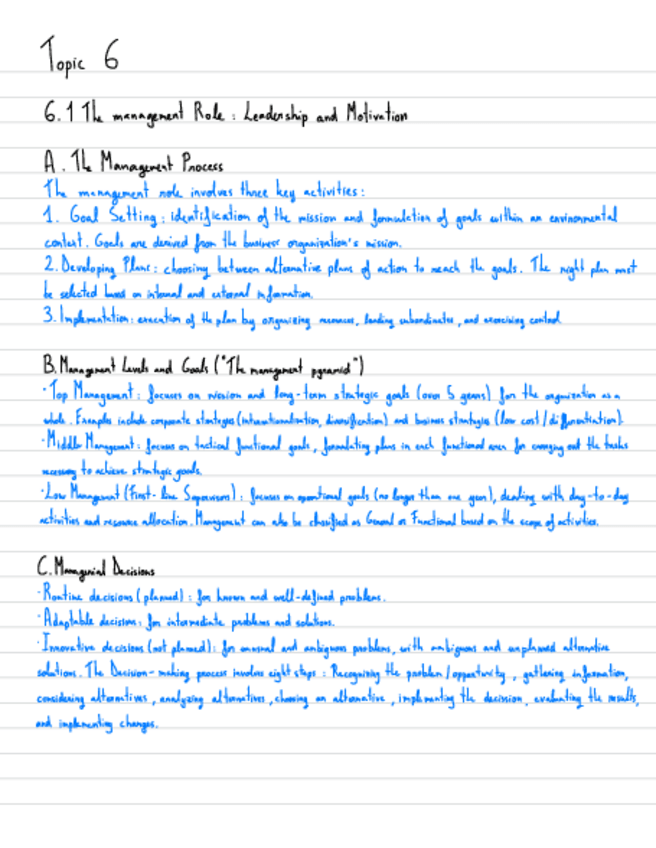 Topic 6
6.1 The management Role : Leadership and Motivation
A. The Management Process
The management role involves three key activities:
1. Goal Setting: identification of the mission and formulation of goals within an environmental
context. Goals are derived from the business organization's mission.
2. Developing Plans: choosing between alternative plans of action to reach the goals. The right plan must
be selected based on internal and external information.
3. Implementation: execution of the plan by organizing resources, leading subordinates, and exercising control
B. Management Levels and Goals ("The management pyramid")
·Top Management: focuses on mission and long-term strategic goals (over 5 years) for the organization as a
whole. Examples include corporate strategies (internationalization, diversification) and business strategies (low cost/differentiation).
·Middle Management: focuses on tactical functional goals, formulating plans in each functional area for carrying out the tasks
necessary to achieve strategic goals.
·Low Management (First-line Supervisors): focuses on operational goals (no longer than one year), dealing with day-to-day
activities and resource allocation. Management can also be classified as General or Functional based on the scope of activities.
C. Managerial Decisions
·Routine decisions (planned): for known and well-defined problems.
·Adaptable decisions: for intermediate problems and solutions.
·Innovative decisions (not planned): for unusual and ambiguous problems, with ambiguous and unplanned alternative
solutions. The Decision-making process involves eight steps: Recognizing the problem/opportunity, gathering information,
considering alternatives, analyzing alternatives, choosing an alternative, implementing the decision, evaluating the results,
and implementing changes.